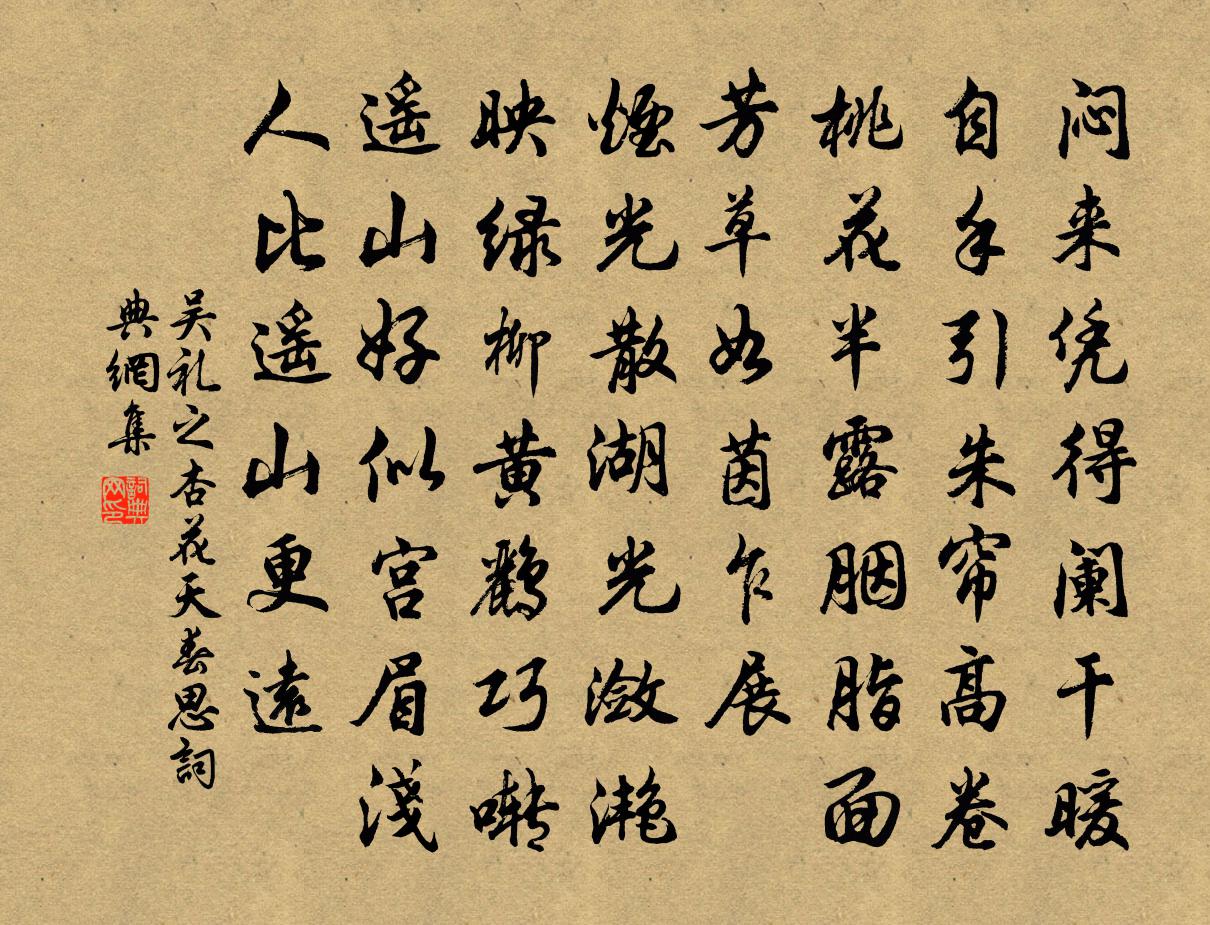 闷来凭得阑干暖
自手引朱帘高卷
桃花半露胭脂面
芳草如茵乍展
煙光散湖光潋滟
映绿柳黄鹂巧啭
遥山好似宫眉淺
人比遥山更遠
吴礼之杏花天春思詞
典網集
詞典网印